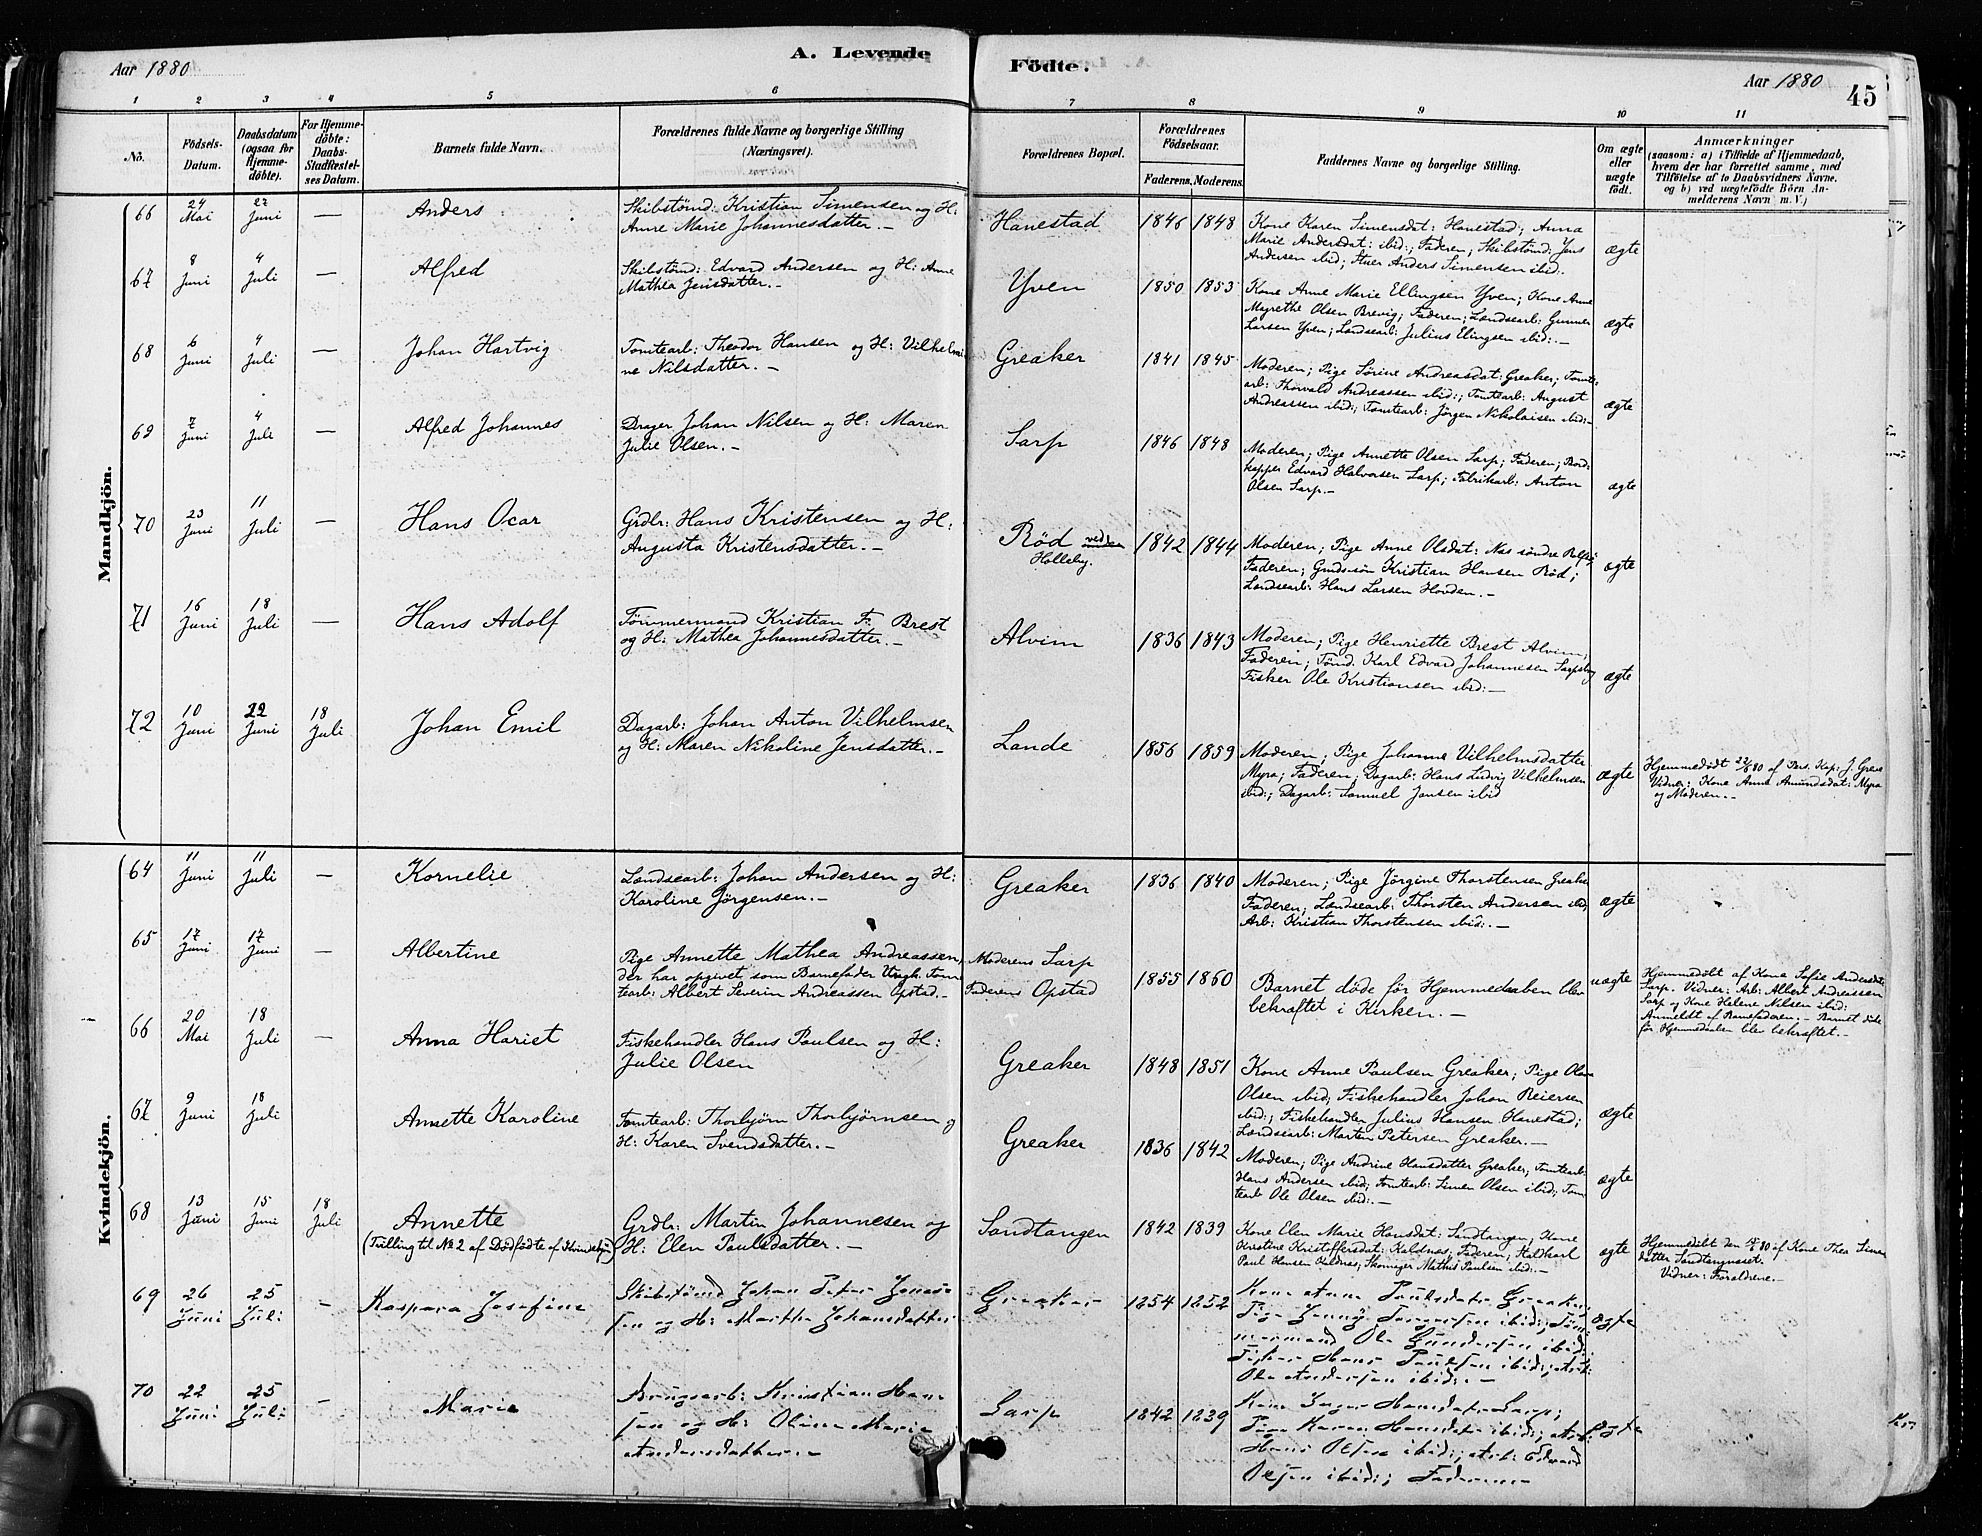 Aar 1880
A. Levende
Födte.
Aar 1880
45
1 2 3 4 5 6 7 8 9 10 11
No.
Födsels-Datum.
Daabsdatum (ogsaa for Hjemmedöbte).
For Hjemmedöbte: Daabs-Stadfæstelses Datum.
Barnets fulde Navn.
Forældrenes fulde Navne og borgerlige Stilling (Næringsvei).
Forældrenes Bopæl.
Forældrenes Födselsaar.
Faderens. Moderens.
Faddernes Navne og borgerlige Stilling.
Om ægte eller uægte födt.
Anmærkninger
(saasom: a) i Tilfælde af Hjemmedaab, hvem der har forrettet samme, med Tilföielse af to Daabsvidners Navne, og b) ved uægtefödte Börn Anmelderens Navn m. V.)
Mandkjön.
66 24 Mai 27 Juni — Anders
Skibstømd: Kristian Simensen og H:
Anne Marie Johannesdatter. —
Hanestad 1846 1848
Kone Karen Simensdat: Hanestad; Anna
Marie Andersdat: ibid:; Faderen; Skibstømd: Jens
Andersen ibid; Stuer Anders Simensen ibid:
ægte
67 8 Juni 4 Juli — Alfred
Skibstømd: Edvard Andersen og H: Anne
Mathea Jensdatter. —
Yven 1850 1853
Kone Anne Marie Ellingsen Yven; Kone Anne
Magrethe Olsen Brevig; Faderen; Landsearb: Gunner
Larsen Yven; Landsearb: Julius Elingsen ibid: —
ægte
68 6 Juni 4 Juli — Johan Hartvig
Tomtearb: Theodor Hansen og H: Vilhelmi
ne Nilsdatter. —
Greaker 1841 1845
Moderen; Pige Sørine Andreasdat: Greaker; Tomte-
arb: Thorvald Andreassen ibid:; Tomtearb: August
Andreassen ibid; Tomtearb: Jörgen Nikolaisen ibid: —
ægte
69 7 Juni 4 Juli — Alfred Johannes
Drager Johan Nilsen og H: Maren
Julie Olsen. —
Sarp 1846 1848
Moderen; Pige Annette Olsen Sarp; Faderen; Bord-
kapper Edvard Halvorsen Sarp; Fabrikarb: Anton
Olsen Sarp. —
ægte
70 23 Juni 11 Juli — Hans Ocar
Grdbr: Hans Kristensen og H:
Augusta Kristensdatter. —
Rød ved
Holleby. 1842 1844
Moderen; Pige Anne Olsdat: Nes søndre Rolfsø;
Faderen; Gaardssøn Kristian Hansen Rød;
Landsearb: Hans Larsen Hovden. —
ægte
71 16 Juni 18 Juli — Hans Adolf
Tømmermand Kristian F. Brest
og H: Mathea Johannesdatter. —
Alvim 1836 1843
Moderen; Pige Henriette Brest Alvim;
Faderen; Tømd. Karl Edvard Johannesen Sarpsborg
Fisker Ole Kristiansen ibid: —
ægte
72 10 Juni 22 Juni 18 Juli Johan Emil
Dagarb: Johan Anton Vilhelmsen
og H: Maren Nikoline Jensdatter. —
Lande 1856 1859
Moderen; Pige Johanne Vilhelmsdatter
Myra; Faderen; Dagarb: Hans Ludvig Vilhelmsen
ibid:; Dagarb: Samuel Jansen ibid
ægte
Hjemmedöbt 22/6 80 af Pers. Kap: J. Greve
Vidner: Kone Anna Amundsdat: Myra
og Moderen. —
Kvindekjön.
64 11 Juni 11 Juli — Kornelie
Landsearb: Johan Andersen og H:
Karoline Jörgensen. —
Greaker 1836 1840
Moderen; Pige Jörgine Thorstensen Greaker
Faderen; Landsearb: Thorsten Andersen ibid;
Arb: Kristian Thorstensen ibid: —
ægte
65 17 Juni 17 Juni — Albertine
Pige Annette Mathea Andreassen,
der har opgivet som Barnefader Ungk. Tom
tearb: Albert Severin Andreassen Opstad. —
Moderens Sarp
Faderens Opstad 1855 1860
Barnet døde før Hjemmedaaben blev
bekræftet i Kirken. —
uægte
Hjemmedöbt af Kone Sofie Andersdtr
Sarp. Vidner: Arb: Albert Andreassen
Sarp og Kone Helene Nilsen ibid:
Anmeldt af Barnefaderen. — Barnet döde
før Hjemmedaaben blev bekræftet. —
66 20 Mai 18 Juli — Anna Hariet
Fiskehandler Hans Paulsen og H:
Julie Olsen
Greaker 1848 1851
Kone Anne Paulsen Greaker; Pige Oline
Olsen ibid; Fiskehandler Johan Reiersen
ibid:; Fiskehandler Julius Hansen Hanestad;
Landsearb: Martin Petersen Greaker. —
ægte
67 9 Juni 18 Juli — Annette Karoline
Tomtearb: Thorbjørn Thorbjørnsen og
H: Karen Svendsdatter. —
Greaker 1836 1842
Moderen; Pige Andrine Hansdatter Greaker; Tomtearb:
Hans Andersen ibid; Tomtearb: Simen Olsen ibid; Tom
tearb Ole Olsen ibid: —
ægte
68 13 Juni 15 Juni 18 Juli Annette
(Tvilling til No 2 af Dödfödte af Kvindekjön)
Grdbr: Martin Johannesen og
H: Elen Paulsdatter. —
Sandtangen 1842 1839
Kone Elen Marie Hansdat: Sandtangen; Kone
Kristine Kristoffersdat: Kaldnæs; Faderen;
Paul Hansen Kaldnæs; Skomager Mathis Paulsen ibid: —
ægte
Hjemmedöbt den 15/6 80 af Kone Thea Simen
datter Sandtangnæsset.
Vidner: Forældrene. —
69 26 Juni 25 Juli — Kaspara Josefine
Skibstømd Johan Peter Jonas-
sen og H: Marthe Johansdatter
Greaker 1854 1852
Kone Anne Paulsdatr Greaker;
Pige Jenny Torgersen ibid:; Töm
mermand Ole Gundersen ibid:
Fisker Hans Paulsen ibid:; Arb:
Ole Andersen ibid: —
ægte
70 22 Juni 25 Juli — Marie
Brugsarb: Kristian Han-
sen og H: Oline Marie
Andersdatter. —
Sarp 1842 1839
Kone Inger Hansdatr Sarp;
Pige Karen Hansdatr ibid:; Arb:
Hans Olsen ibid:; Arb: Edvard
Olsen ibid:; Faderen —
ægte